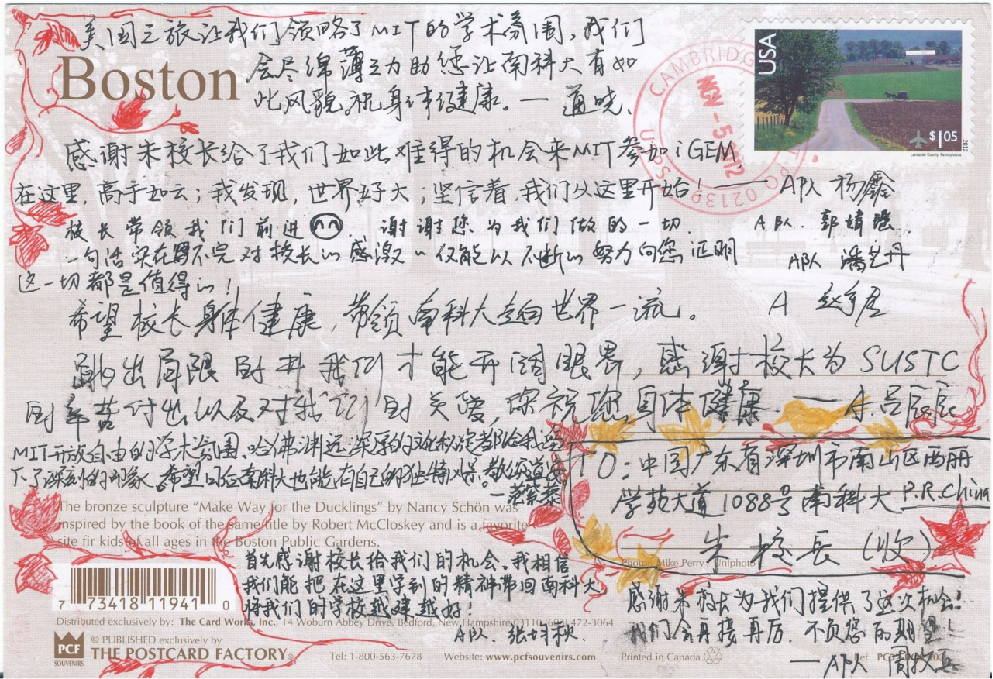 美国之旅让我们领略了MIT的学术氛围,我们
会尽绵薄之力助您让南科大有如
此风貌。祝身体健康。— 通晓.
Boston
USA
$1.05
CAMBRIDGE
NOV - 5
02139
USPS
感谢朱校长给了我们如此难得的机会来MIT参加iGEM
在这里,高手如云;我发现,世界好大;坚信着,我们从这里开始!—— A队 杨鑫
校长带领我们前进 谢谢您为我们做的一切. A队. 郭靖
一句话实在写不完对校长的感激 仅能以不断的努力向您证明 A队 潘艺丹
这一切都是值得的!
希望校长身体健康,带领南科大走向世界一流。 A
跳出局限的井我们才能开阔眼界,感谢校长为SUSTC
的辛苦付出以及对我们的关爱,深祝您身体健康.
MIT开放自由的学术氛围,哈佛渊远深厚的都给我
下了深刻的印象.希望日后南科大也能有自己的独特
TO:中国广东省深圳市南山区西丽
学苑大道1088号南科大 P.R.China
朱校长(收)
The bronze sculpture “Make Way for the Ducklings” by Nancy Schön was
inspired by the book of the same title by Robert McCloskey and is a favorite
site for kids of all ages in the Boston Public Gardens.
Photo: Mike Perry, Uniphoto
首先感谢校长给我们的机会.我相信
我们能把在这里学到的精神带回南科大,
将我们的学校越建越好!
A队. 张羽秋
感谢朱校长为我们提供了这次机会!
我们会再接再厉.不负您的期望!
—A队 周
7 73418 11941 0
Distributed exclusively by: The Card Works, Inc. 14 Woburn Abbey Drive, Bedford, New Hampshire 03110 (603) 472-3064
PCF
SOUVENIRS
© PUBLISHED exclusively by
THE POSTCARD FACTORY
Tel: 1-800-563-7678
Website: www.pcfsouvenirs.com
Printed in Canada